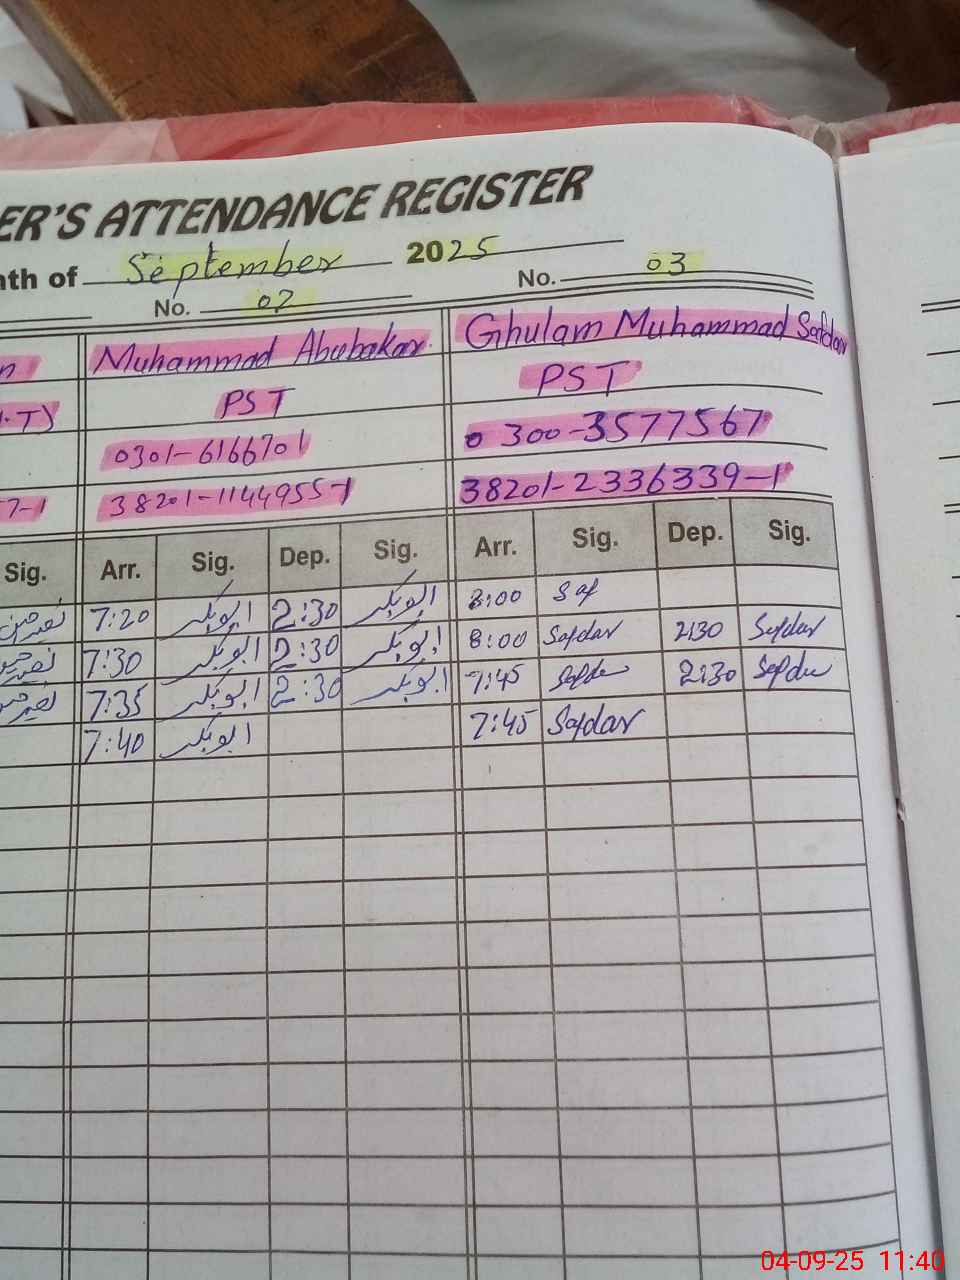 ER'S ATTENDANCE REGISTER
nth of September 2025
No. 02 No. 03
n Muhammad Abubakar Ghulam Muhammad Safdar
PST PST
0301-6166701 0300-3577567
7-1 38201-1144955-1 38201-2336339-1
Sig. Arr. Sig. Dep. Sig. Arr. Sig. Dep. Sig.
7:20 ابوبکر 2:30 ابوبکر 8:00 Saf
7:30 ابوبکر 2:30 ابوبکر 8:00 Safdar 2:30 Safdar
7:35 ابوبکر 2:30 ابوبکر 7:45 Safdar 2:30 Safdar
7:40 ابوبکر 7:45 Safdar
04-09-25 11:40